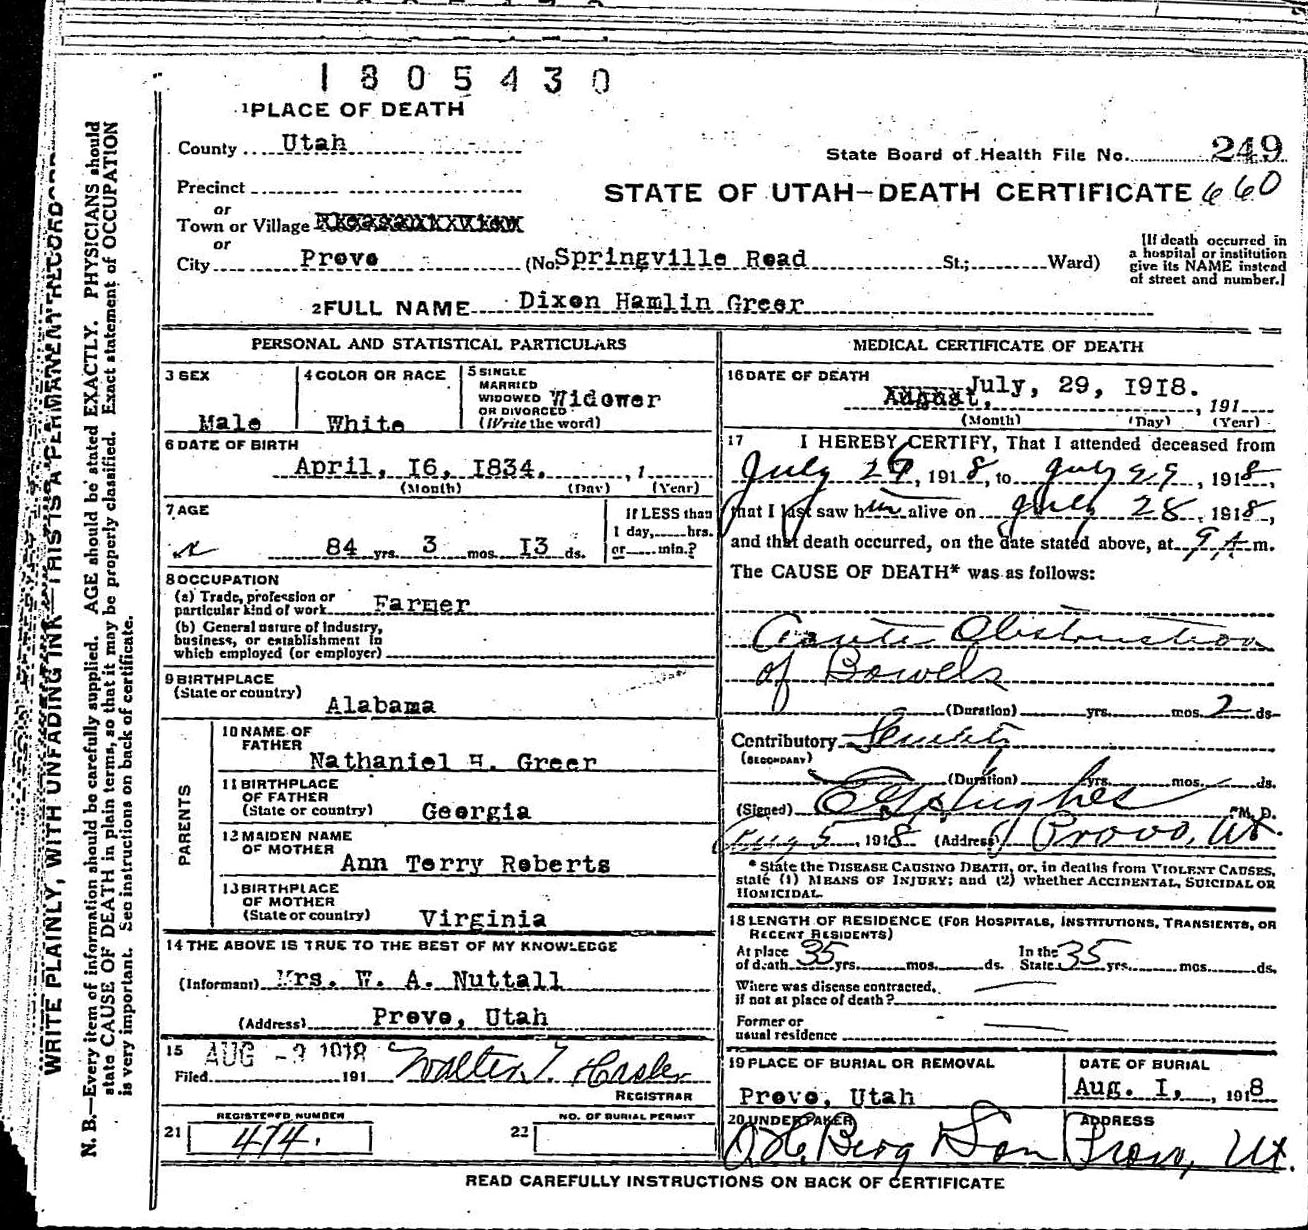 1805430
1 PLACE OF DEATH
County Utah
State Board of Health File No. 249
Precinct
STATE OF UTAH—DEATH CERTIFICATE 660
or
Town or Village
or
City Provo (No. Springville Road St.; Ward)
[If death occurred in
a hospital or institution
give its NAME instead
of street and number.]
2 FULL NAME Dixon Hamlin Greer
PERSONAL AND STATISTICAL PARTICULARS
3 SEX
Male
4 COLOR OR RACE
White
5 SINGLE
MARRIED
WIDOWED
OR DIVORCED
(Write the word)
Widower
6 DATE OF BIRTH
April, I6, I834. , 1
(Month) (Day) (Year)
7 AGE
84 yrs. 3 mos. I3 ds.
If LESS than
1 day, hrs.
or min.?
8 OCCUPATION
(a) Trade, profession or
particular kind of work Farmer
(b) General nature of industry,
business, or establishment in
which employed (or employer)
9 BIRTHPLACE
(State or country)
Alabama
PARENTS
10 NAME OF
FATHER
Nathaniel H. Greer
11 BIRTHPLACE
OF FATHER
(State or country) Georgia
12 MAIDEN NAME
OF MOTHER
Ann Terry Roberts
13 BIRTHPLACE
OF MOTHER
(State or country) Virginia
14 THE ABOVE IS TRUE TO THE BEST OF MY KNOWLEDGE
(Informant) Mrs. W. A. Nuttall
(Address) Provo, Utah
15 AUG -9 1918
Filed 191
REGISTRAR
REGISTERED NUMBER
21 474.
NO. OF BURIAL PERMIT
22
MEDICAL CERTIFICATE OF DEATH
16 DATE OF DEATH
August, July, 29, I9I8.
, 191
(Month) (Day) (Year)
17 I HEREBY CERTIFY, That I attended deceased from
July 26, 1918, to July 29, 1918,
that I last saw him alive on July 28, 1918,
and that death occurred, on the date stated above, at 9 A. m.
The CAUSE OF DEATH* was as follows:
Acute Obstruction
of Bowels
(Duration) yrs. mos. 2 ds.
Contributory Senility
(SECONDARY)
(Duration) yrs. mos. ds.
(Signed) Hughes M. D.
Aug 5, 1918 (Address) Provo, Ut.
* State the DISEASE CAUSING DEATH, or, in deaths from VIOLENT CAUSES,
state (1) MEANS OF INJURY; and (2) whether ACCIDENTAL, SUICIDAL OR
HOMICIDAL.
18 LENGTH OF RESIDENCE (FOR HOSPITALS, INSTITUTIONS, TRANSIENTS, OR
RECENT RESIDENTS)
At place
of death 35 yrs. mos. ds.
In the
State 35 yrs. mos. ds.
Where was disease contracted,
if not at place of death?
Former or
usual residence
19 PLACE OF BURIAL OR REMOVAL
Provo, Utah
DATE OF BURIAL
Aug. I, , 1918
20 UNDERTAKER
Berg Son
ADDRESS
Provo, Ut.
READ CAREFULLY INSTRUCTIONS ON BACK OF CERTIFICATE
WRITE PLAINLY, WITH UNFADING INK—THIS IS A PERMANENT RECORD
N. B.—Every item of information should be carefully supplied. AGE should be stated EXACTLY. PHYSICIANS should
state CAUSE OF DEATH in plain terms, so that it may be properly classified. Exact statement of OCCUPATION
is very important. See instructions on back of certificate.